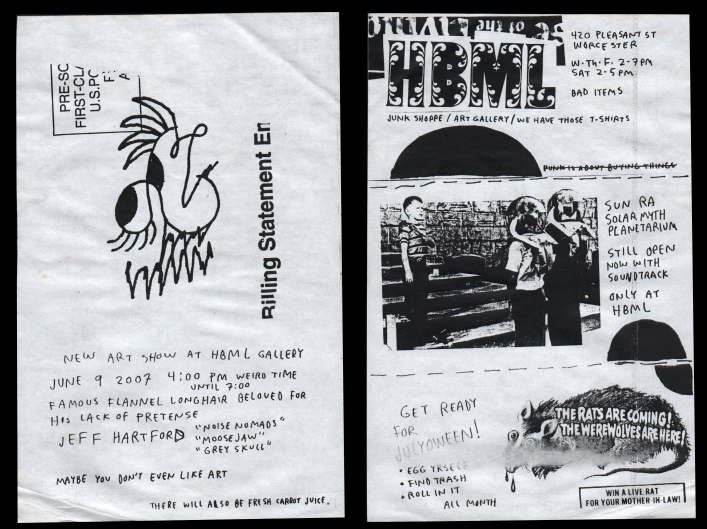 PRE-SC
FIRST-CLA
U.S.PC
F
A
Billing Statement En
NEW ART SHOW AT HBML GALLERY
JUNE 9 2007 4:00 PM WEIRD TIME
UNTIL 7:00
FAMOUS FLANNEL LONGHAIR BELOVED FOR
HIS LACK OF PRETENSE
JEFF HARTFORD "NOISE NOMADS"
"MOOSEJAW"
"GREY SKULL"
MAYBE YOU DON'T EVEN LIKE ART
THERE WILL ALSO BE FRESH CARROT JUICE.
HBML
420 PLEASANT ST
WORCESTER
W·TH·F· 2-7PM
SAT 2-5PM
BAD ITEMS
JUNK SHOPPE / ART GALLERY / WE HAVE THOSE T-SHIRTS
PUNK IS ABOUT BUYING THINGS
SUN RA
SOLAR MYTH
PLANETARIUM
STILL OPEN
NOW WITH
SOUNDTRACK
ONLY AT
HBML
GET READY
FOR
JULYOWEEN!
• EGG YRSELF
• FIND TRASH
• ROLL IN IT
ALL MONTH
THE RATS ARE COMING!
THE WEREWOLVES ARE HERE!
WIN A LIVE RAT
FOR YOUR MOTHER-IN-LAW!